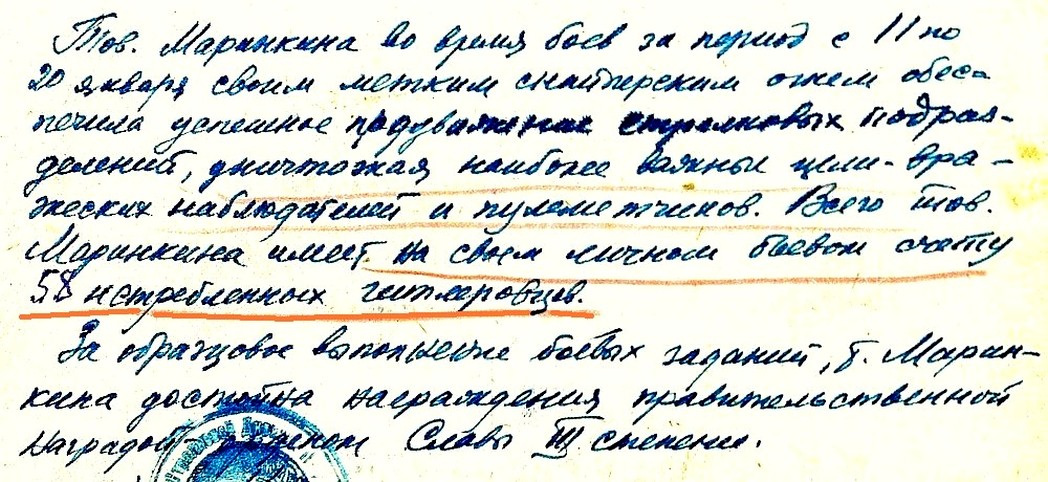 Тов. Маринкина во время боев за период с 11 по
20 января своим метким снайперским огнем обес-
печила успешное продвижение стрелковых подраз-
делений, уничтожая наиболее важные цели - вра-
жеских наблюдателей и пулеметчиков. Всего тов.
Маринкина имеет на своем личном боевом счету
58 истребленных гитлеровцев.
За образцовое выполнение боевых заданий, т. Марин-
кина достойна награждения правительственной
наградой - орденом Славы III степени.